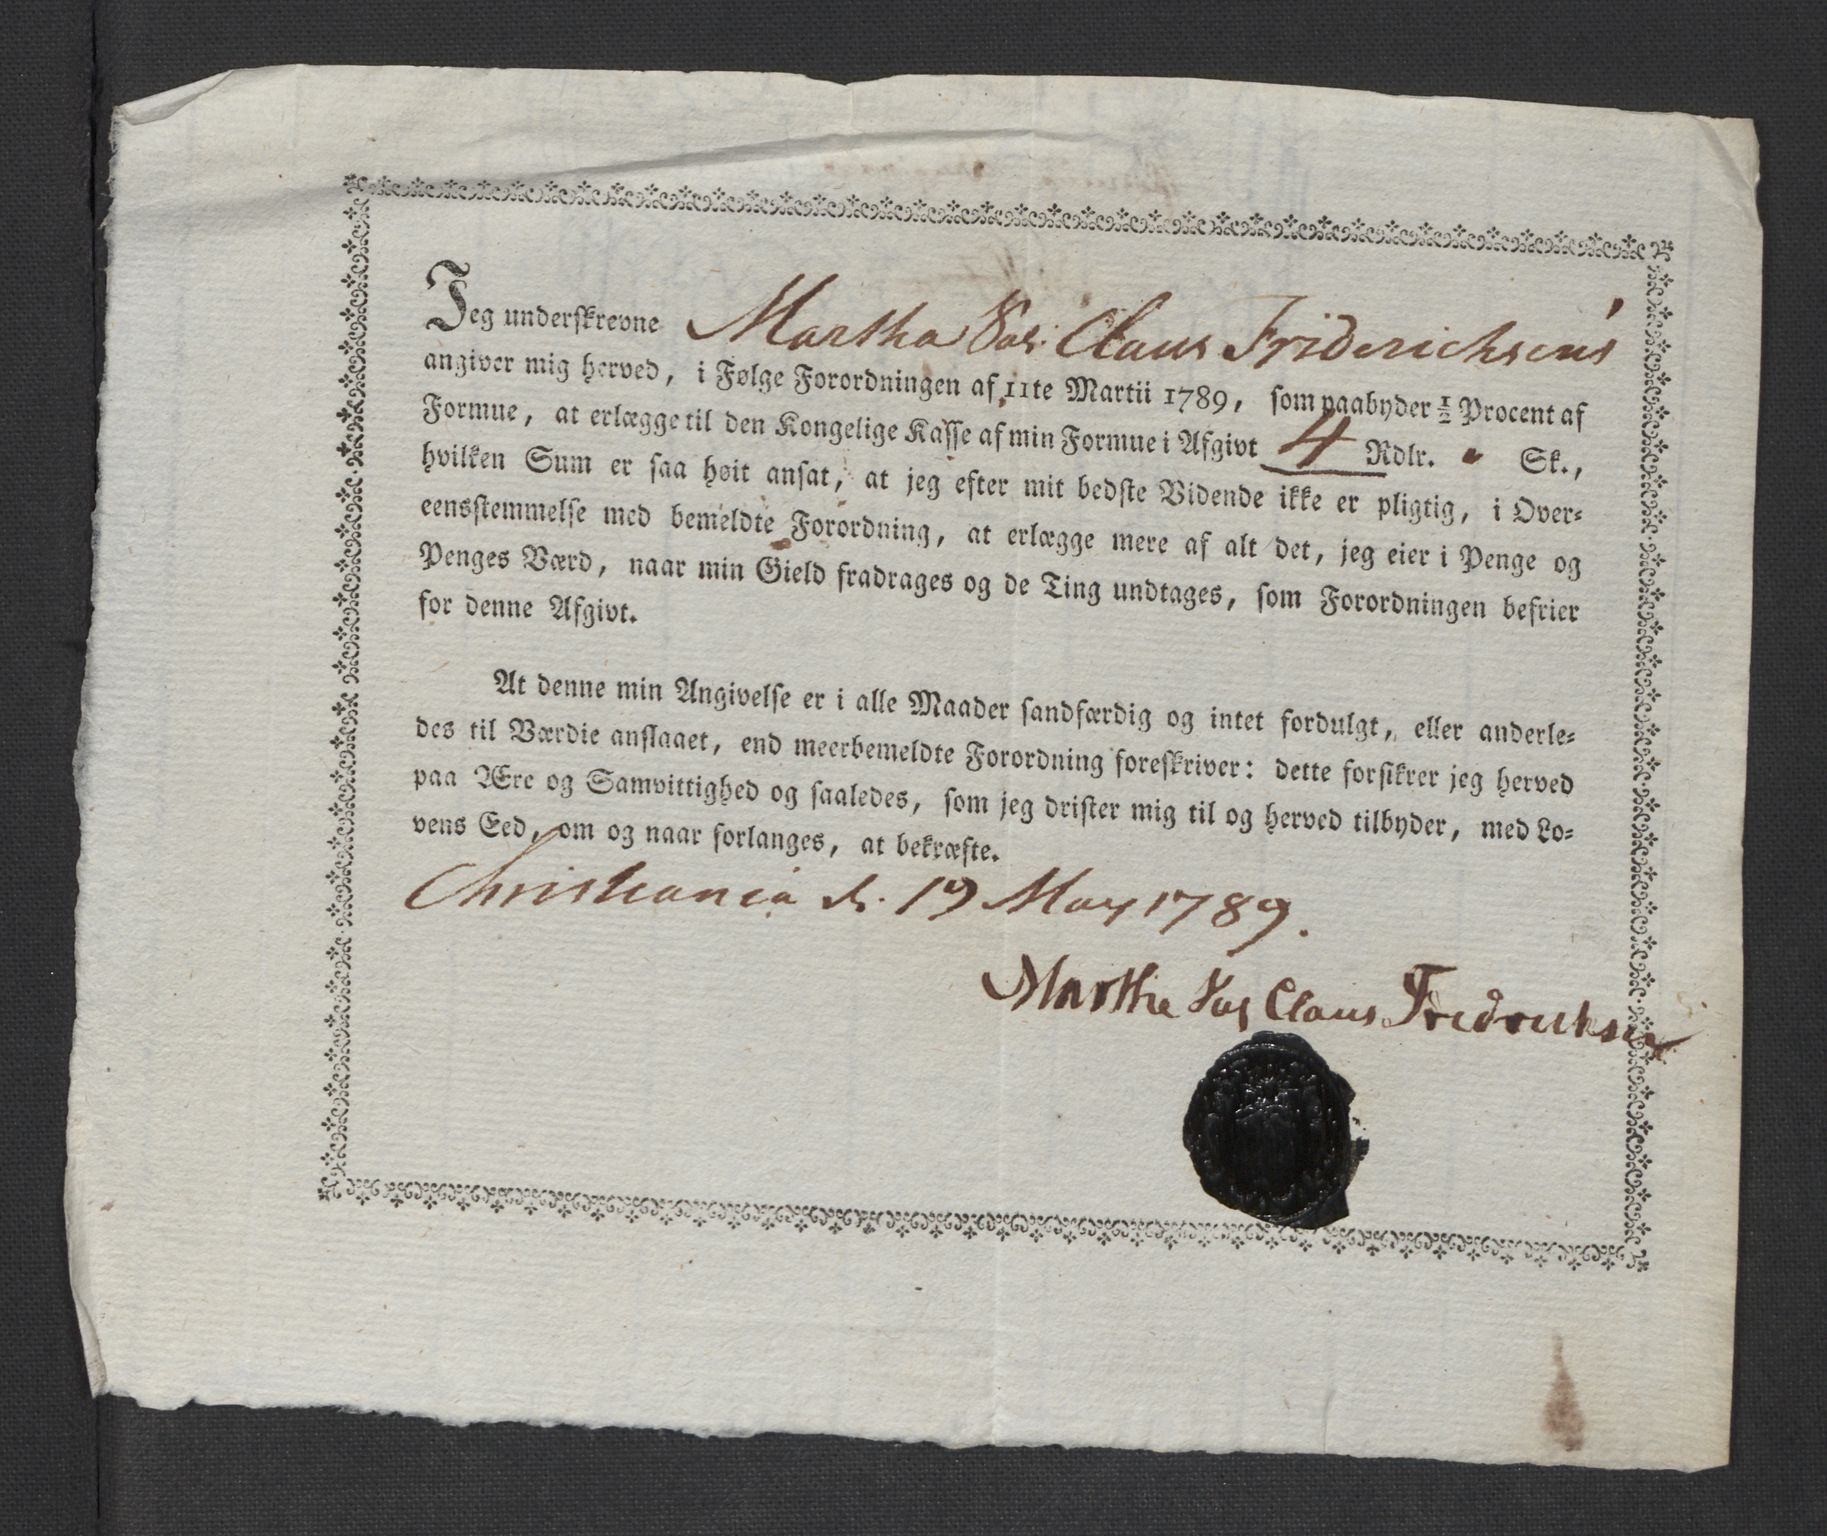 Jeg underskrevne Martha Sal: Claus Friderichsens
angiver mig herved, i Følge Forordningen af 11te Martii 1789, som paabyder ½ Procent af
Formue, at erlægge til den Kongelige Kasse af min Formue i Afgivt 4 Rdlr. " Sk.,
hvilken Sum er saa høit ansat, at jeg efter mit bedste Vidende ikke er pligtig, i Over-
eensstemmelse med bemeldte Forordning, at erlægge mere af alt det, jeg eier i Penge og
Penges Værd, naar min Gield fradrages og de Ting undtages, som Forordningen befrier
for denne Afgivt.
At denne min Angivelse er i alle Maader sandfærdig og intet fordulgt, eller anderle-
des til Værdie anslaaet, end meerbemeldte Forordning foreskriver: dette forsikrer jeg herved
paa Ære og Samvittighed og saaledes, som jeg drister mig til og herved tilbyder, med Lo-
vens Eed, om og naar forlanges, at bekræfte.
Christiania d. 19 May 1789.
Marthe Sal Claus Fredricksen